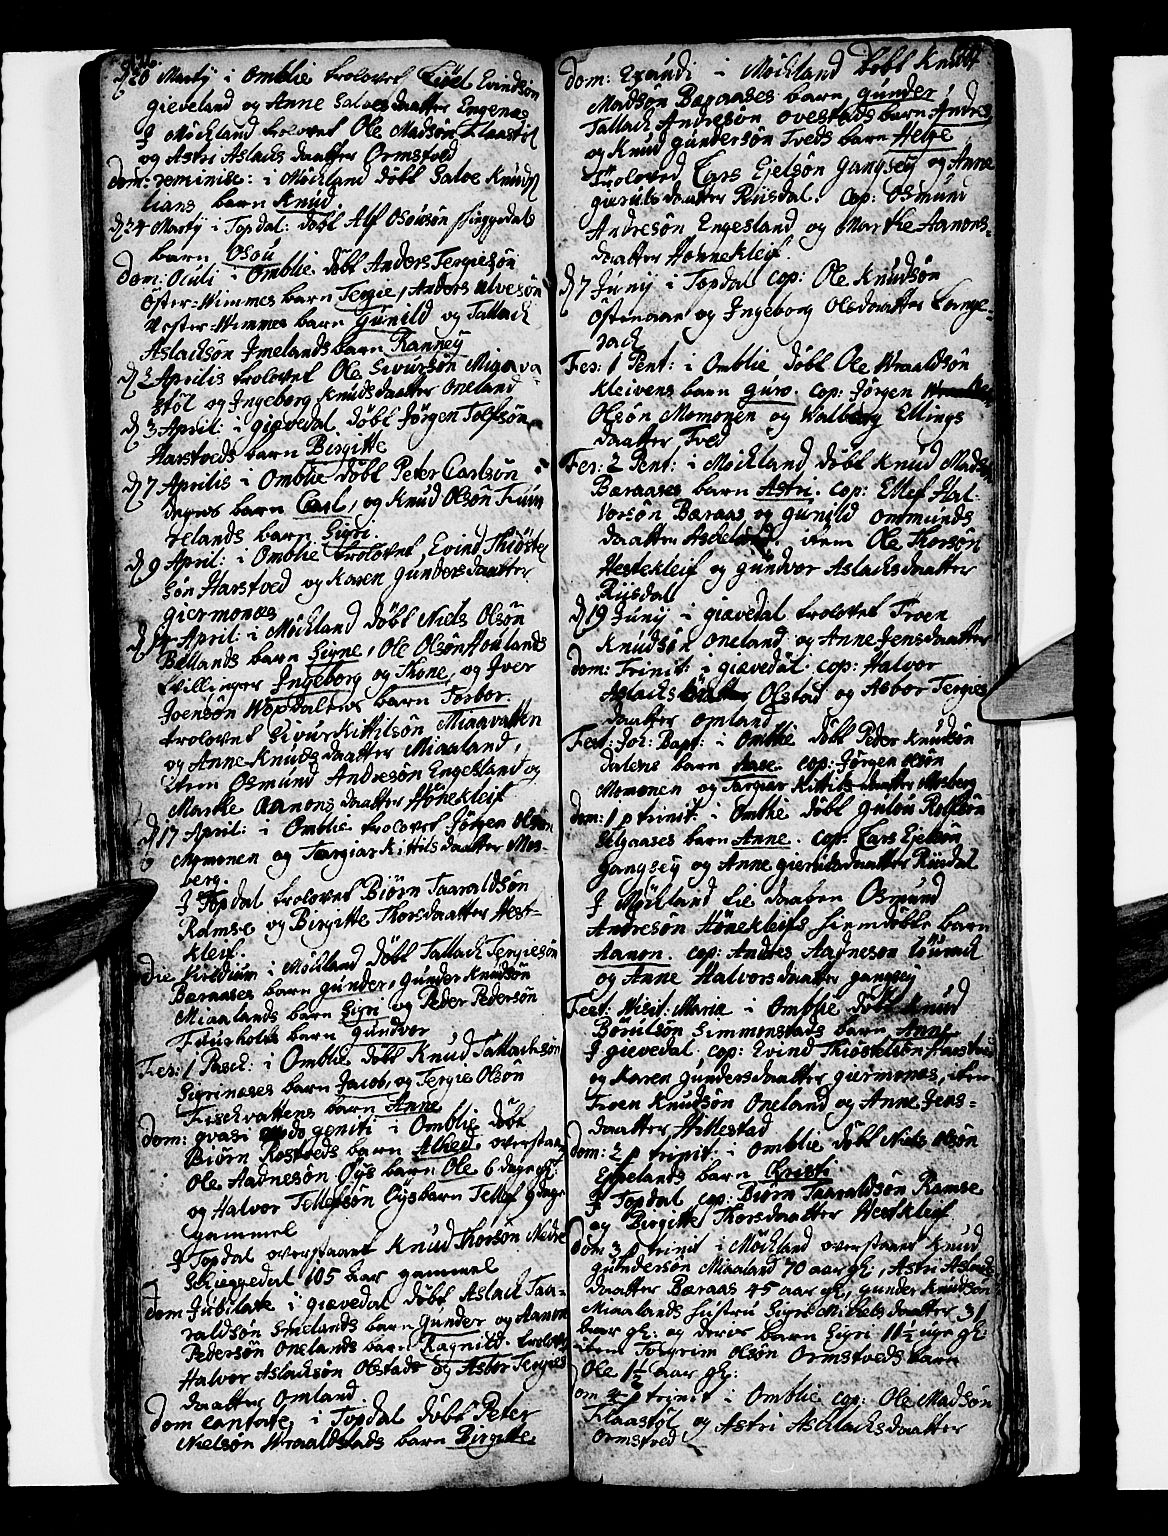 d 20 Martÿ i Omblie trolovet Eivind
gieveland og Anne Salvesdaatter Engenæs
J Mÿckland trolovet Ole Madsøn Flaastøl
og Astri Aslachsdaatter Ormstved
dom: reminisc: i Mÿckland døbt Salve Knuds
barn Knud.
d 24 Martÿ i Topdal: døbt Alf Osousøn skieggedals
barn Osou
dom: Oculi i Omblie døbt Anders Tergiesøn
Øster-Wimmes barn Tergie, Anders ulvesøn
Vester-Wimmes barn Gunild og Tallach
Aslachsøn Jmelands barn Ranneÿ
d 2 Aprilis trolovet Ole Sivursøn Migava-
støl og Jngeborg Knudsdaatter Oneland
d 3 April: i giøvedal døbt Jørgen Tolfsøn
Harstveds barn Birgitte
d 7 Aprilis i Omblie døbt Peter Carlsøn
barn Carl, og Knud Olsøn
relands barn Sigri.
d 9 April: i Omblie trolovet Evind Thiøstel
søn Harstved og Karen Gundersdaatter
giermonæs
April: i Mÿckland døbt Niels Olsøn
Bellands barn Signe, Ole Olsøn Houlands
tvillinger Jngeborg og Thone, og Jver
Joensøn barn Torbor.
trolovet Sivur Kittilsøn Miaavatten
og Anne Knudsdaatter Miaaland,
item Osmund Andresøn Engesland og
Marte Aanonsdaatter Hönekleif
d 17 April: i Omblie trolovet Jørgen Olsøn
Momonen og Targiar Kittilsdaatter Mos-
berg.
J Topdal trolovet Biørn Taaraldsøn
Ramse og Birgitte Thorsdaatter Hest-
kleif.
die viridium i Mÿckland døbt Tallach Tergiesøn
Bæraases barn gunder, Gunder Knudsøn
Miaalands barn Sigri og Peder Pedersøn
barn Gundvor
Fer: 1 Pasch: i Omblie døbt Knud Tallachsøn
Sigrinæses barn Jacob, og Tergie Olsøn
Fischvattens barn Anne
dom: qvasi modo geniti i Omblie døbt
Biørn Rostveds barn Alhed, overstaaet
Ole Aadnesøn Øÿs barn Ole 6 dage gl:
og Halvor Tellefsøn Øÿs barn Tellef 9 dage
gammel
J Topdal overstaaet Knud Thorsøn Nedre
Skieggedal 105 aar gammel
dom Jubilate i giøvedal døbt Aslach Taa-
raldsøn Smelands barn Gunder og Aanon
Pedersøn Onelands barn Ragnild. trolovet
Halvor Aslachsøn Olstad og Asbor Tergies
daatter Omland
dom cantate, i Topdal døbt Peter
Nielsøn Wraaldstads barn Birgitte.
dom: Exaudi i Mÿckland døbt Knud
Madsøn Bæraases barn gunder
Tallach Andresøn ovestads barn Andres,
og Knud Gundersøn Tveds barn Helge
Troloved Lars Ejelsøn Gangseÿ og Anne
gierulsdaatter Rÿsdal. Cop: Osmund
Andresøn Engesland og Marthe Aanons-
daatter Hönnekleif.
d 7 Junÿ i Topdal cop: Ole Knudsøn
Østenaae og Jngeborg Olesdaatter Lange-
rach
Fer: 1 Pent: i Omblie døbt Ole Wraaldsøn
Kleivens barn Guro cop: Jørgen
Olsøn Momonen og Walborg Ellings
daatter Tved
Fer: 2 Pent: i Mÿckland døbt Knud Mads
Bæraases barn Astri. cop: Ellef Hal-
vorsøn Bæraas og Gunild ommunds
daatter item Ole Thorsøn
Hestekleif og Gundvor Aslachsdaatter
Rÿsdal
d 19 Junÿ i giøvedal trolovet Troen
Knudsøn Oneland og Anne Jensdaatter
dom: Trinit: i giævedal cop: Halvor
Aslachs Olstad og Asbor Tergies
daatter omland
Fest: Joh: Bapt: i Omblie døbt Peder Knudsøn
dalens barn Aase cop: Jørgen Olsøn
Momonen og Targiar Kittilsdaatter Mosberg
dom: 1 p trinit: i Omblie døbt
Selgaases barn Anne. cop: Lars Ejelsøn
Gangseÿ og Anne gierulsdaatter Riisdal
J Mÿckland til daaben Osmund
Andresøn Hönekleifs hiemdøbte barn
Aanon. cop: Andres Aagnesøn
og Anne Halvorsdaatter gangseÿ
Fest: Visit: Mariæ i Omblie døbt Knud
Simmonstads barn Anne
J gievedal cop: Evind Thiøstelsøn Harstved
og Karen Gundersdaatter giermonæs, item
Troen Knudsøn Oneland og Anne Jens-
daatter Hillestad
dom: 2 p trinit: i Omblie døbt Niels Olsøn
Espelands barn Christi
J Topdal cop: Biørn Taaraldsøn Ramse
og Birgitte Thorsdaatter Hestkleif
dom 3 p trinit i Mÿckland overstaaet Knud
Gundersøn Miaaland 70 aar gl:, Astri Aslachs
daatter Bæraas 45 aar gl:, Gunder Knudsøn
Miaalands hustru Sigri Nielsdaatter 31
aar gl: og deris barn Sigri 11½ uge gl:
item Torgrim Olsøn Ormstveds barn
Ole 1½ aar gl:
om 4 p trinit: i Omblie cop: Ole Madsøn
Flaastøl og Astri Aschlachsdaatter
Ormstved